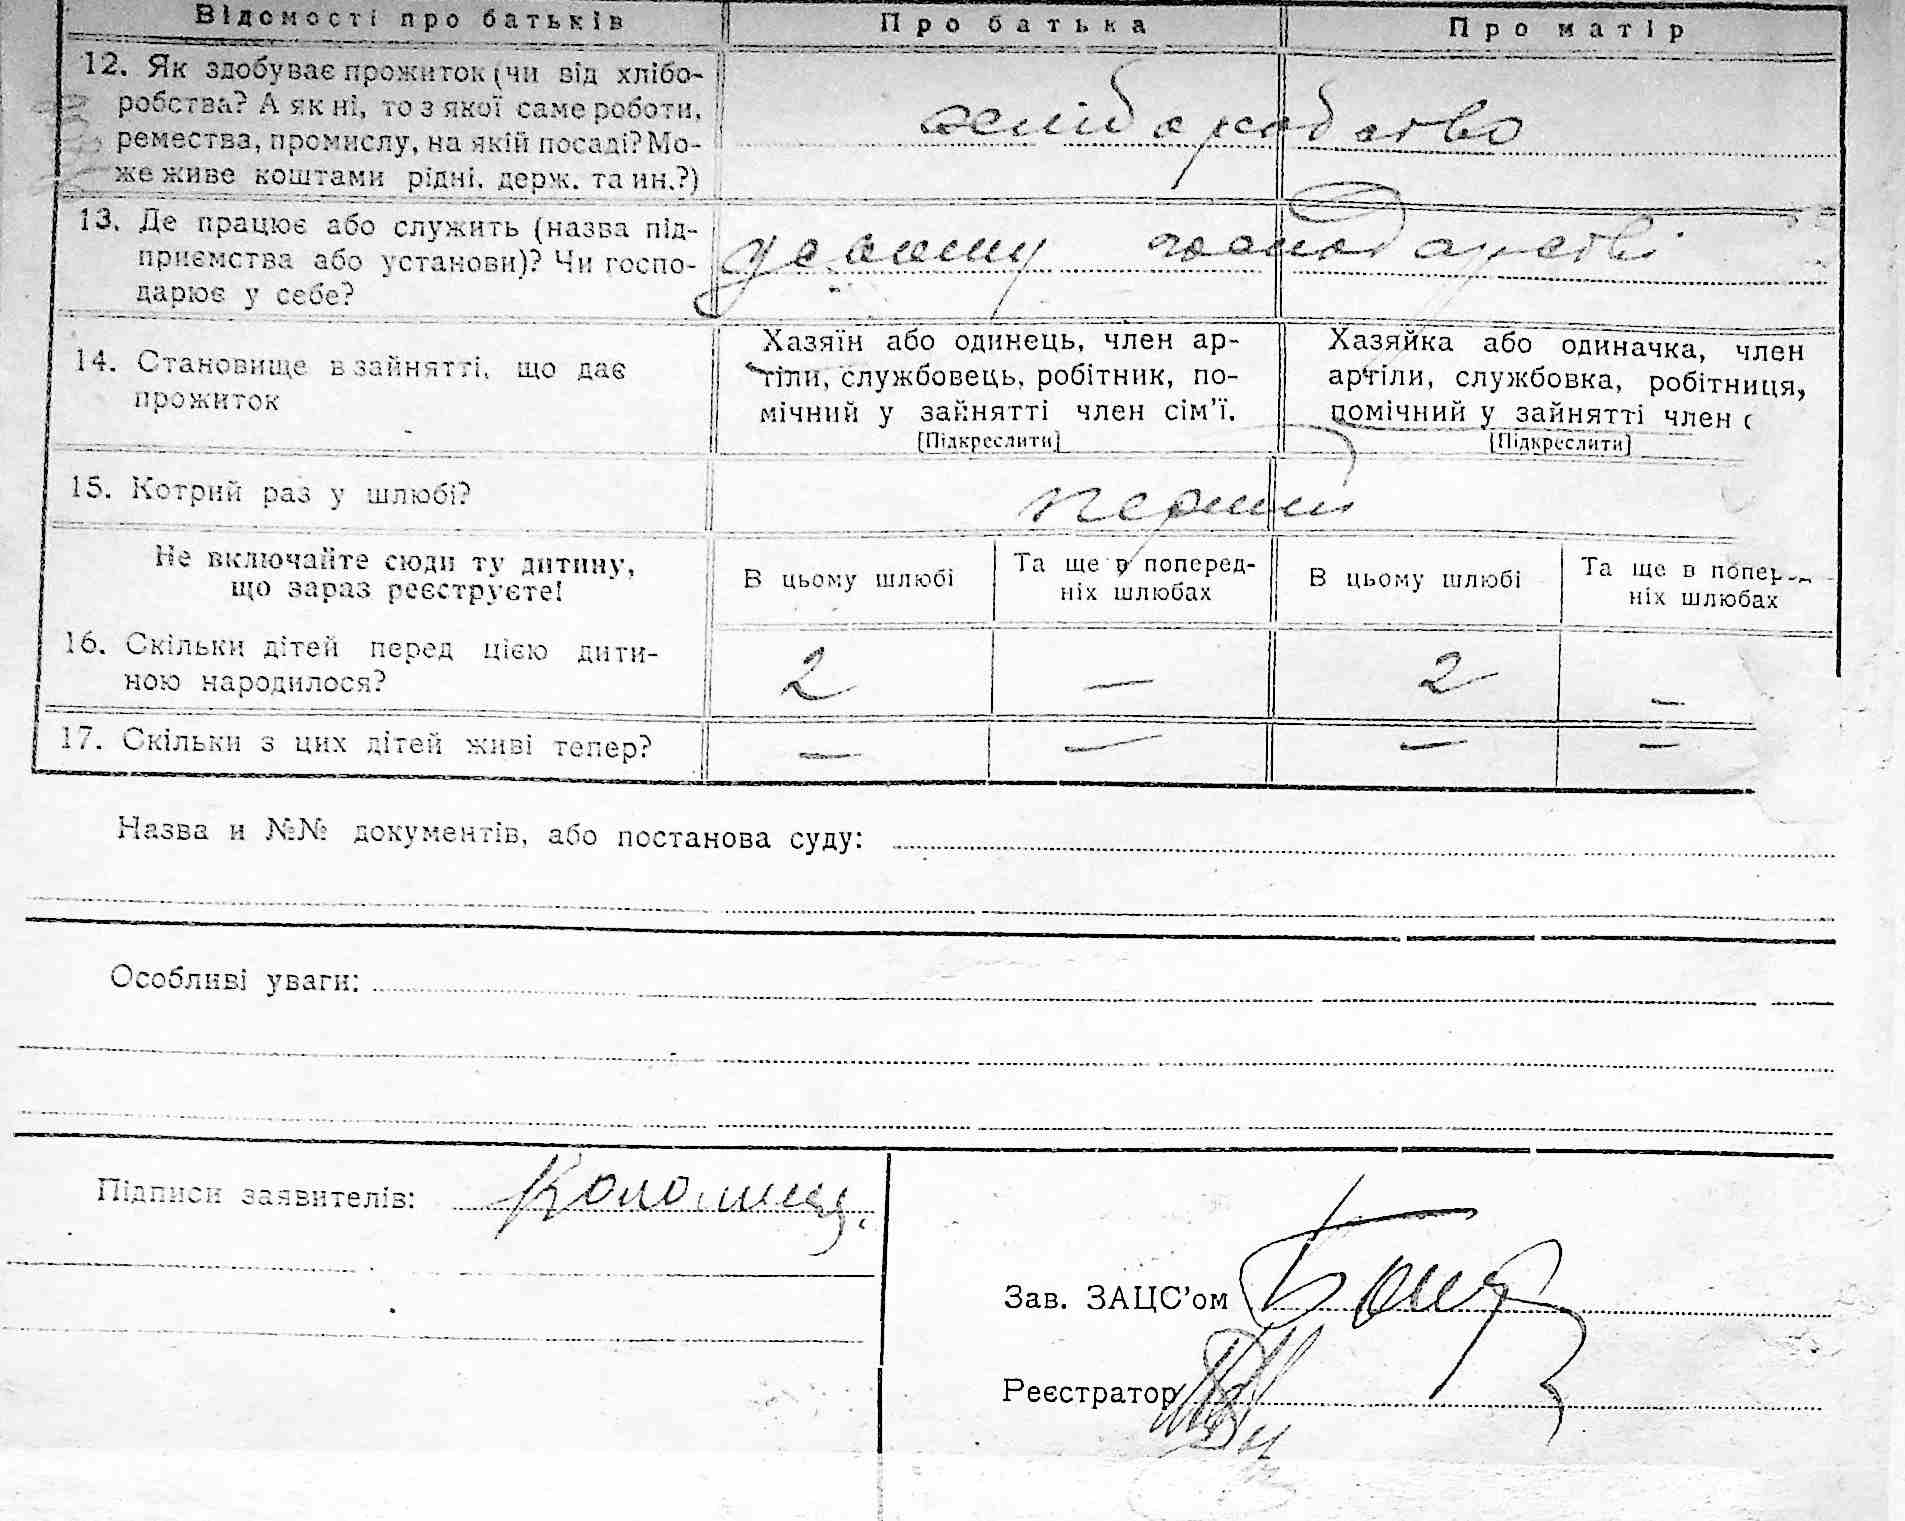 Відомості про батьків Про батька Про матір
12. Як здобуває прожиток (чи від хлібо-
робства? А як ні, то з якої саме роботи,
ремества, промислу, на якій посаді? Мо-
же живе коштами рідні, держ. та ин.?)
хліборобство
13. Де працює або служить (назва під-
приємства або установи)? Чи госпо-
дарює у себе?
у своєму господарстві
14. Становище в зайнятті, що дає
прожиток
Хазяїн або одинець, член ар-
тіли, службовець, робітник, по-
мічний у зайнятті член сім'ї.
[Підкреслити]
Хазяйка або одиначка, член
артіли, службовка, робітниця,
помічний у зайнятті член с
[Підкреслити]
15. Котрий раз у шлюбі?
перший
Не включайте сюди ту дитину,
що зараз реєструєте!
В цьому шлюбі
Та ще в поперед-
ніх шлюбах
В цьому шлюбі
Та ще в поперед-
ніх шлюбах
16. Скільки дітей перед цією дити-
ною народилося?
2 — 2 —
17. Скільки з цих дітей живі тепер?
— — — —
Назва и №№ документів, або постанова суду:
Особливі уваги:
Підписи заявителів:
Зав. ЗАЦС'ом
Реєстратор